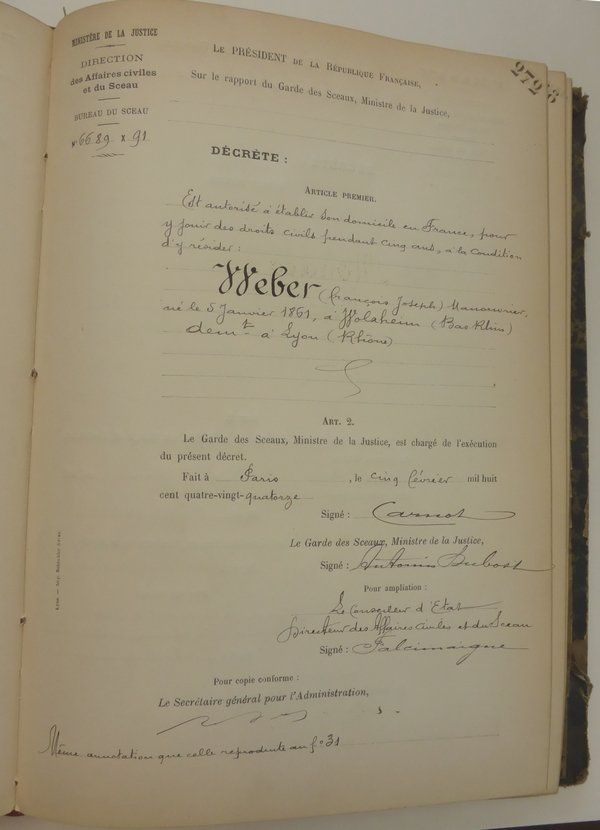 MINISTÈRE DE LA JUSTICE
DIRECTION
des Affaires civiles
et du Sceau
BUREAU DU SCEAU
N° 6689 X 91
272
LE PRÉSIDENT DE LA RÉPUBLIQUE FRANÇAISE,
Sur le rapport du Garde des Sceaux, Ministre de la Justice,
DÉCRÈTE :
ARTICLE PREMIER.
Est autorisé à établir son domicile en France, pour
y jouir des droits civils pendant cinq ans, à la condition
d'y résider :
Weber (François Joseph) Manoeuvrier,
né le 5 Janvier 1861, à Wolxheim (Bas Rhin)
demt à Lyon (Rhône)
ART. 2.
Le Garde des Sceaux, Ministre de la Justice, est chargé de l'exécution
du présent décret.
Fait à Paris , le cinq février mil huit
cent quatre-vingt-quatorze
Signé : Carnot
Le Garde des Sceaux, Ministre de la Justice,
Signé : Antonin Dubost
Pour ampliation :
Le Conseiller d'Etat
Directeur des Affaires Civiles et du Sceau
Signé : Falcimaigne
Pour copie conforme :
Le Secrétaire général pour l'Administration,
Même annotation que celle reproduite au f° 31